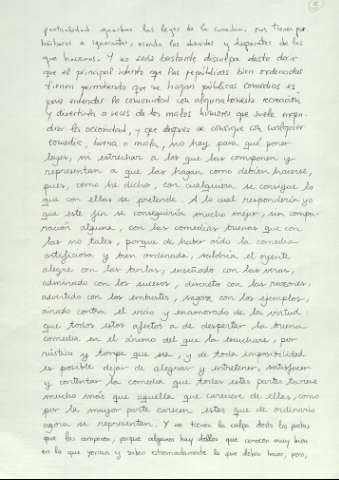 puntualidad guardan las leyes de la comedia, nos tienen por
bárbaros e ignorantes, viendo los absurdos y disparates de las
que hacemos. Y no sería bastante disculpa desto decir
que el principal intento que las repúblicas bien ordenadas
tienen permitiendo que se hagan públicas comedias es
para entretener la comunidad con alguna honesta recreación
y divertirla a veces de los malos humores que suele engen-
drar la ociosidad, y que después se consigue con cualquier
comedia, buena o mala, no hay para qué poner
leyes, ni estrechar a los que las componen y
representan a que las hagan como debían hacerse,
pues, como he dicho, con cualquiera se consigue lo
que con ellas se pretende. A lo cual respondería yo
que este fin se conseguiría mucho mejor, sin compa-
ración alguna, con las comedias buenas que con
las no tales, porque de haber oído la comedia
artificiosa y bien ordenada, saldría el oyente
alegre con las burlas, enseñado con las veras,
admirado con los sucesos, discreto con las razones,
advertido con los embustes, sagaz con los ejemplos,
airado contra el vicio y enamorado de la virtud:
que todos estos afectos a de despertar la buena
comedia en el ánimo del que la escuchare, por
rústico y torpe que sea, y de toda imposibilidad
es posible dejar de alegrar y entretener, satisfacer
y contentar la comedia que todas estas partes tuviere
mucho más que aquella que careciere de ellas, como
por la mayor parte carecen estas que de ordinario
agora se representan. Y no tienen la culpa desto los poetas
que las componen, porque algunos hay dellos que conocen muy bien
en lo que yerran y saben estremadamente lo que deben hacer, pero,